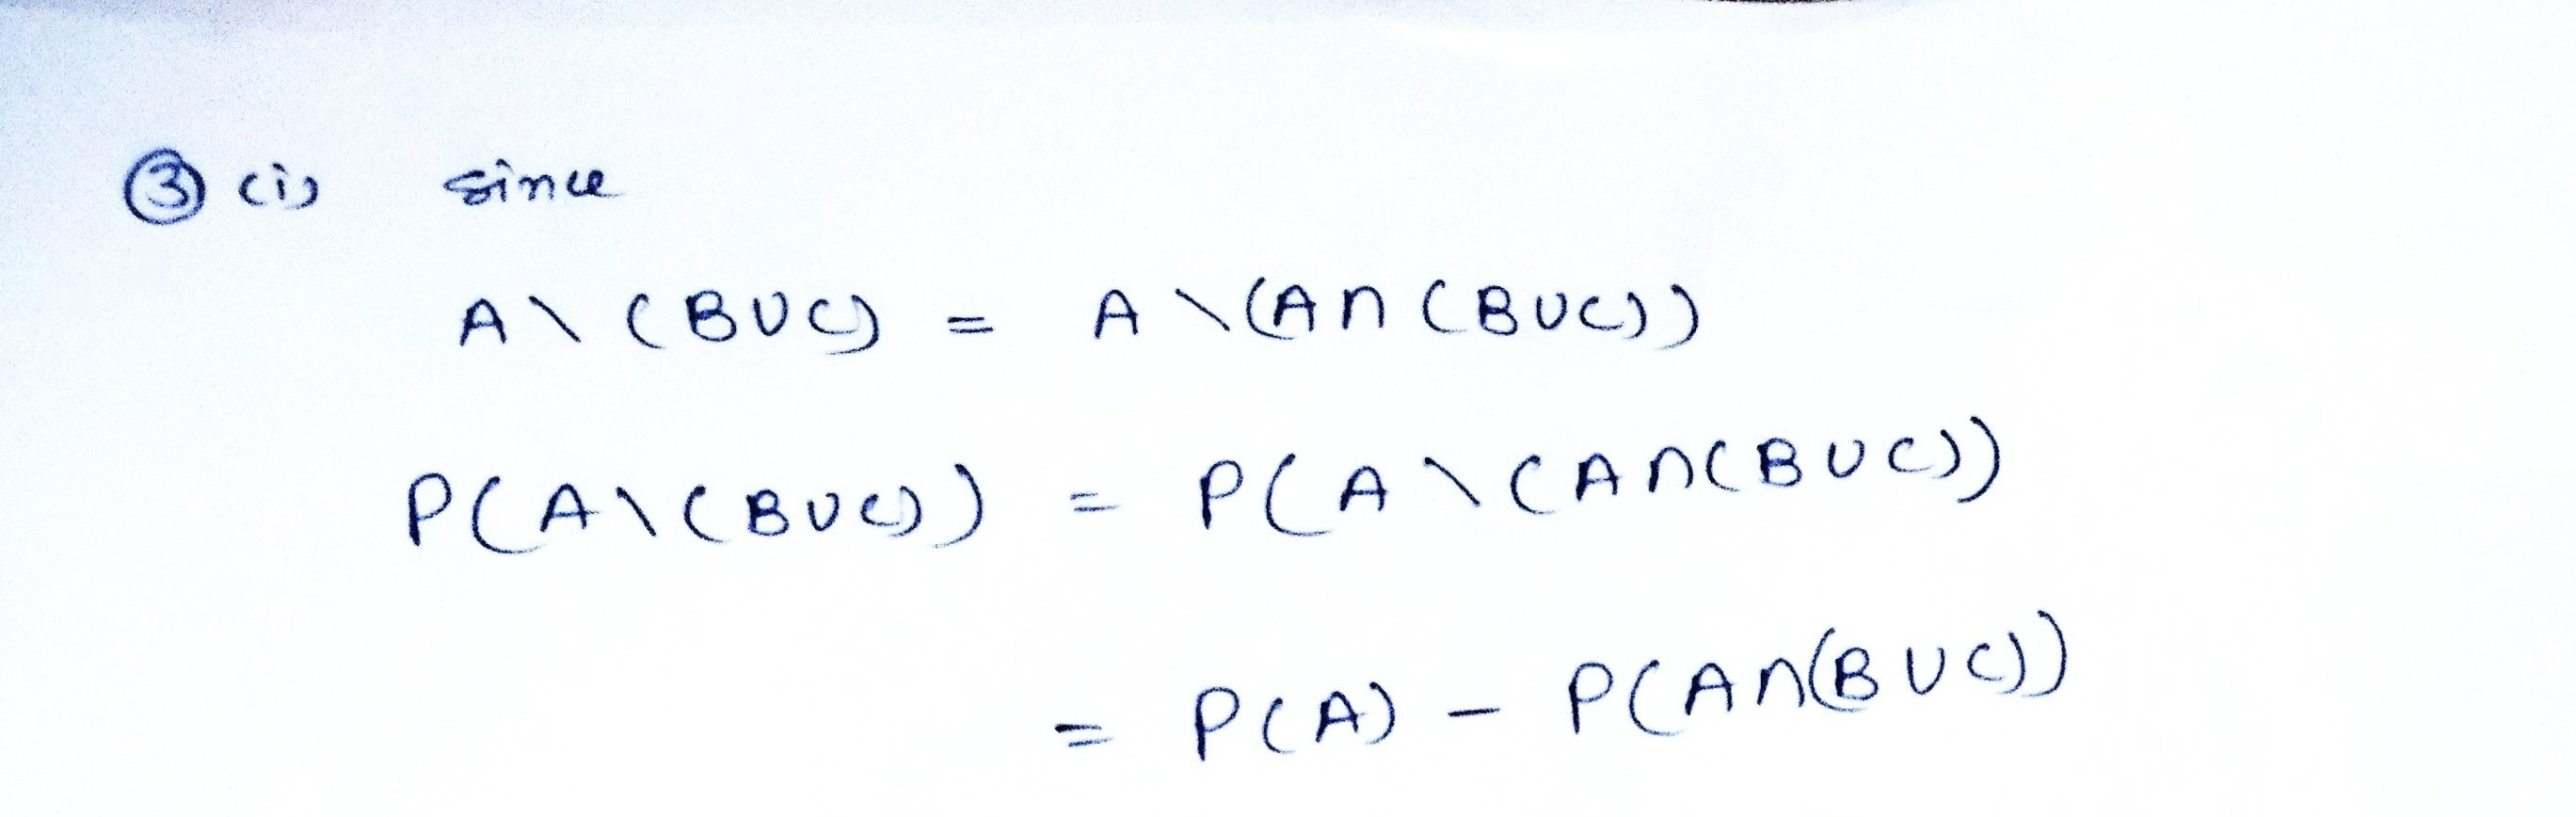 ③ (i) since
A \ (B∪C) = A \ (A∩(B∪C))
P(A\(B∪C)) = P(A \ (A∩(B∪C))
= P(A) - P(A∩(B∪C))